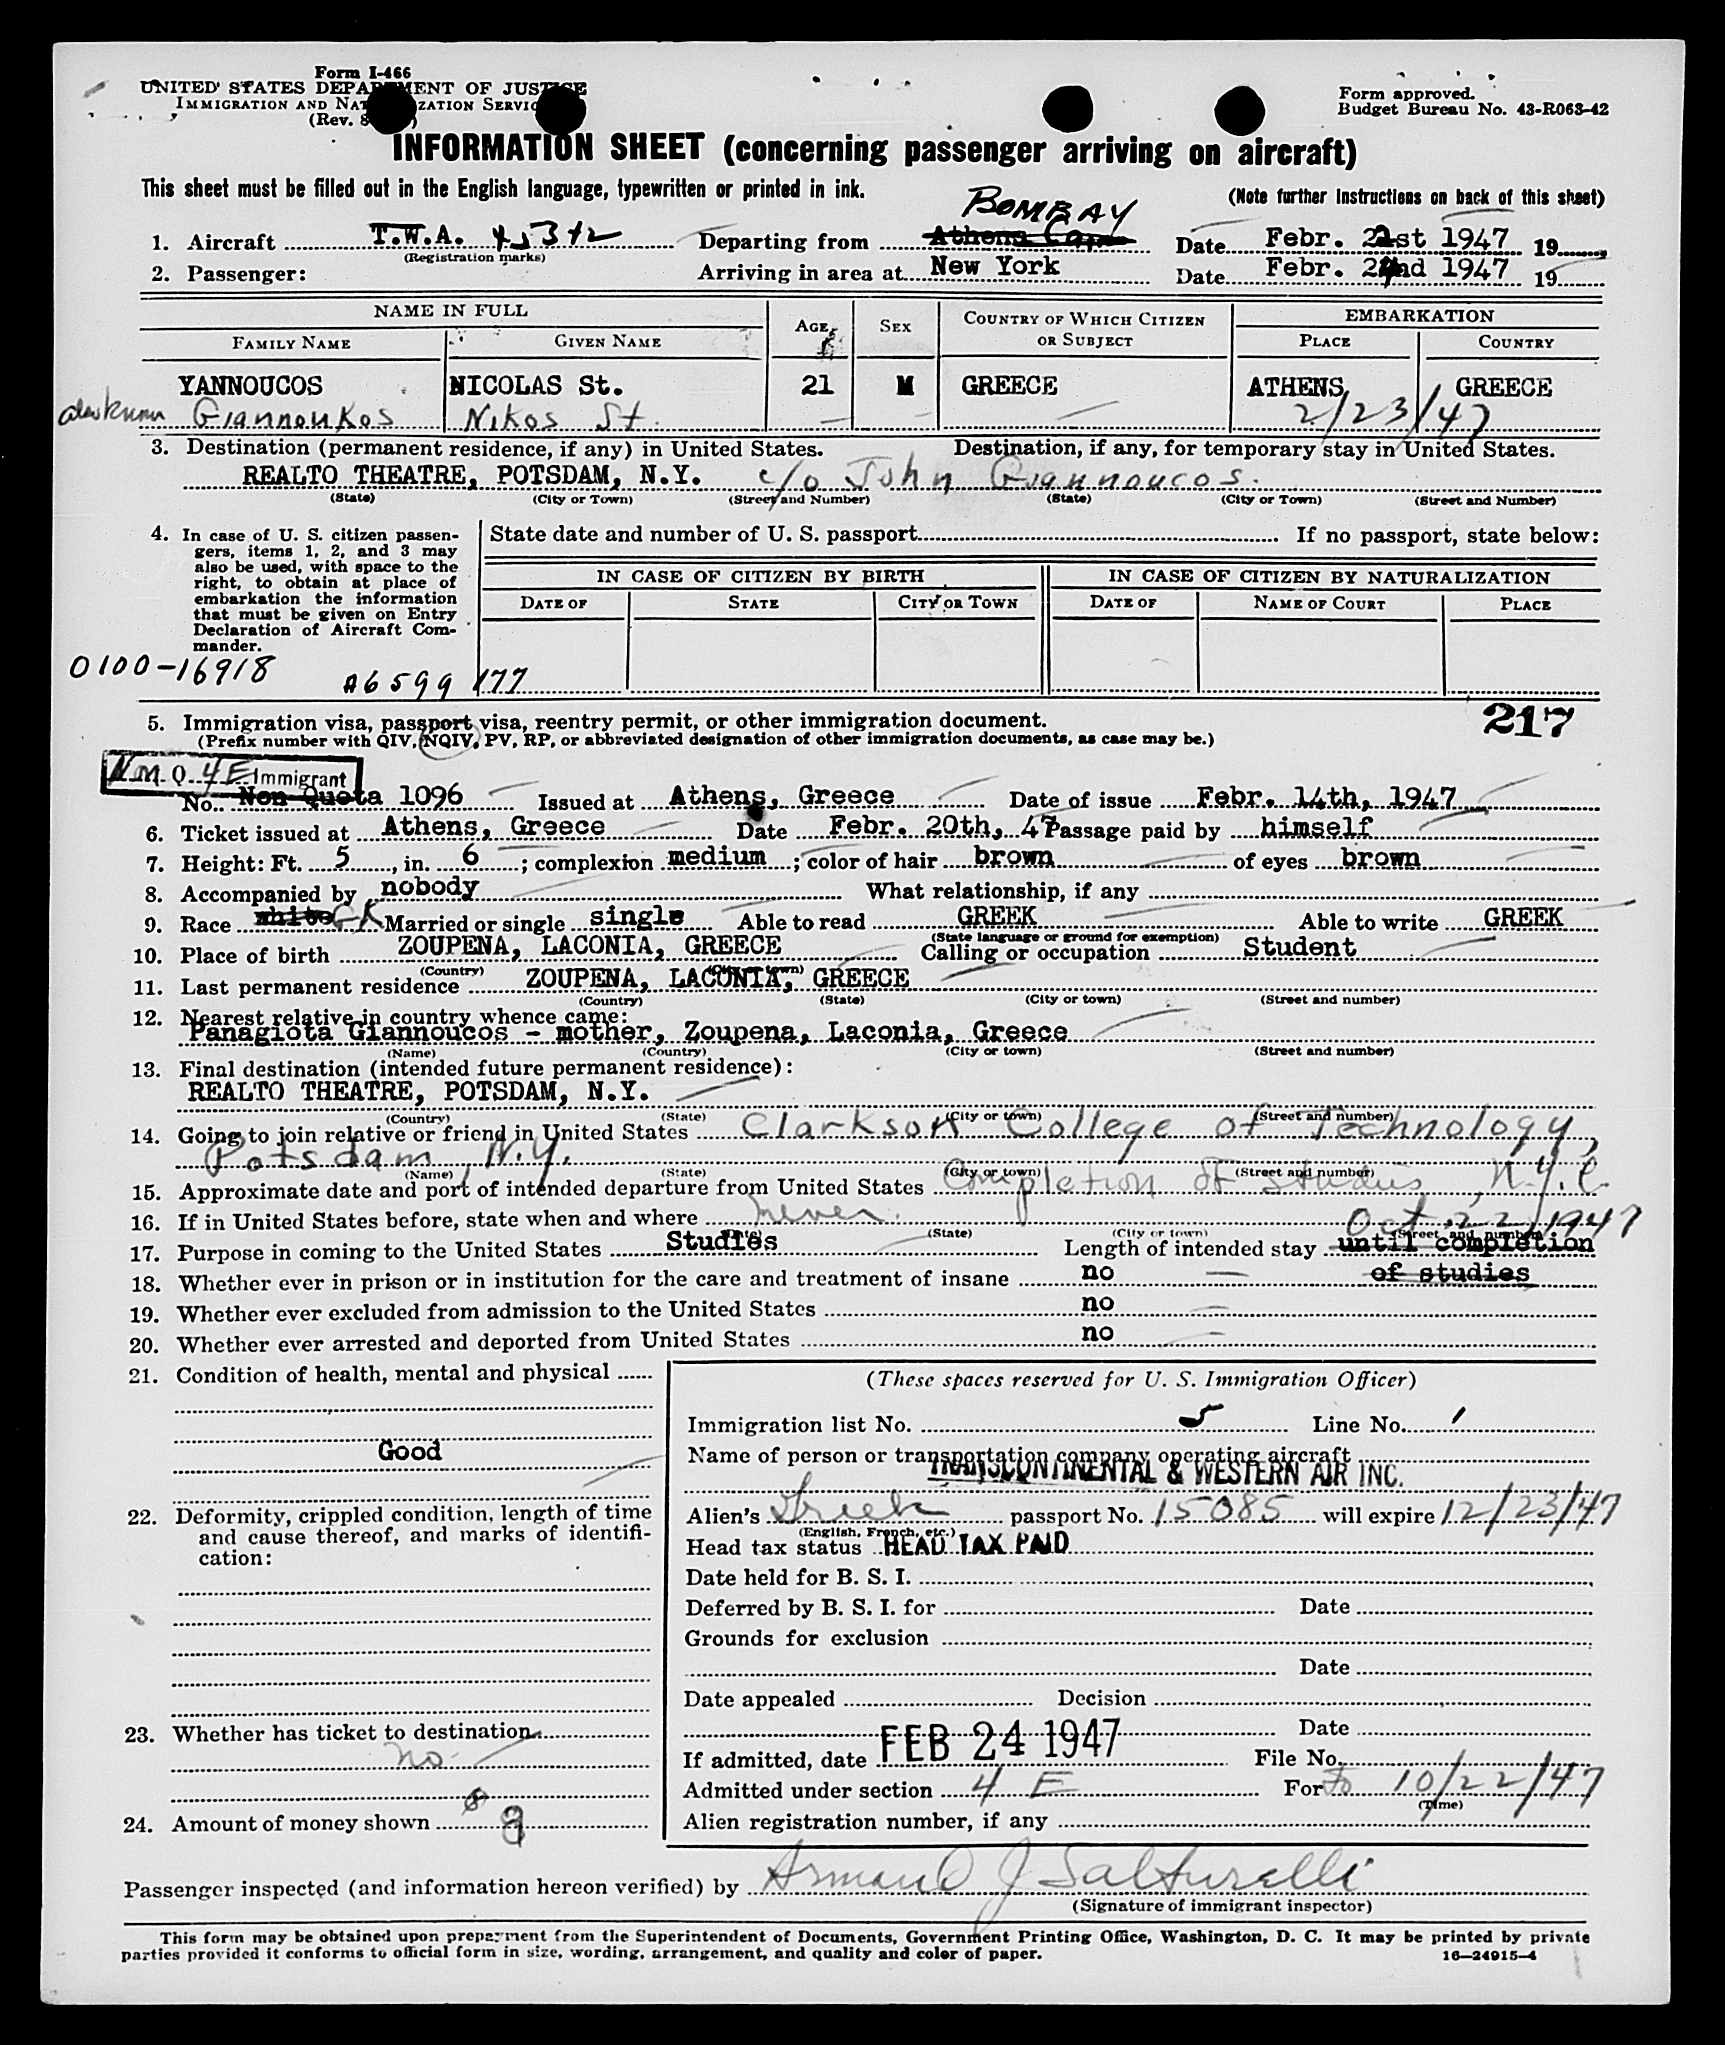 Form I-466
UNITED STATES DEPARTMENT OF JUSTICE
IMMIGRATION AND NATURALIZATION SERVICE
(Rev. 8
Form approved.
Budget Bureau No. 43-R063-42
INFORMATION SHEET (concerning passenger arriving on aircraft)
This sheet must be filled out in the English language, typewritten or printed in ink.
(Note further instructions on back of this sheet)
BOMBAY
1. Aircraft T.W.A. 45342 Departing from Athens Date Febr. 21st 1947 19
(Registration marks)
2. Passenger: Arriving in area at New York Date Febr. 24nd 1947 19
NAME IN FULL AGE SEX COUNTRY OF WHICH CITIZEN OR SUBJECT EMBARKATION
FAMILY NAME GIVEN NAME PLACE COUNTRY
YANNOUCOS NICOLAS St. 21 M GREECE ATHENS GREECE
also known Giannoukos Nikos St. 2/23/47
3. Destination (permanent residence, if any) in United States. Destination, if any, for temporary stay in United States.
REALTO THEATRE, POTSDAM, N.Y. c/o John Giannoucos.
(State) (City or Town) (Street and Number) (State) (City or Town) (Street and Number)
4. In case of U. S. citizen passen-
gers, items 1, 2, and 3 may
also be used, with space to the
right, to obtain at place of
embarkation the information
that must be given on Entry
Declaration of Aircraft Com-
mander.
State date and number of U. S. passport If no passport, state below:
IN CASE OF CITIZEN BY BIRTH IN CASE OF CITIZEN BY NATURALIZATION
DATE OF STATE CITY OR TOWN DATE OF NAME OF COURT PLACE
0100-16918 A6599177
217
5. Immigration visa, passport visa, reentry permit, or other immigration document.
(Prefix number with QIV, NQIV, PV, RP, or abbreviated designation of other immigration documents, as case may be.)
Nm Q. 4E Immigrant
No. Non Quota 1096 Issued at Athens, Greece Date of issue Febr. 14th, 1947
6. Ticket issued at Athens, Greece Date Febr. 20th, 47 Passage paid by himself
7. Height: Ft. 5, in. 6; complexion medium; color of hair brown of eyes brown
8. Accompanied by nobody What relationship, if any
9. Race white GK Married or single single Able to read GREEK Able to write GREEK
(State language or ground for exemption)
10. Place of birth ZOUPENA, LACONIA, GREECE Calling or occupation Student
(Country) (City or town)
11. Last permanent residence ZOUPENA, LACONIA, GREECE
(Country) (State) (City or town) (Street and number)
12. Nearest relative in country whence came:
Panagiota Giannoucos - mother, Zoupena, Laconia, Greece
(Name) (Country) (City or town) (Street and number)
13. Final destination (intended future permanent residence):
REALTO THEATRE, POTSDAM, N.Y.
(Country) (State) (City or town) (Street and number)
14. Going to join relative or friend in United States Clarkson College of Technology,
Potsdam, N.Y.
(Name) (State) (City or town) (Street and number)
15. Approximate date and port of intended departure from United States Completion of studies, N.Y.C.
16. If in United States before, state when and where never.
(Date) (State) (City or town) (Street and number)
Oct. 22, 1947
17. Purpose in coming to the United States Studies Length of intended stay until completion
of studies
18. Whether ever in prison or in institution for the care and treatment of insane no
19. Whether ever excluded from admission to the United States no
20. Whether ever arrested and deported from United States no
21. Condition of health, mental and physical
Good
22. Deformity, crippled condition, length of time
and cause thereof, and marks of identifi-
cation:
23. Whether has ticket to destination
no.
24. Amount of money shown
(These spaces reserved for U. S. Immigration Officer)
Immigration list No. 5 Line No. 1
Name of person or transportation company operating aircraft
TRANSCONTINENTAL & WESTERN AIR INC.
Alien's Greek passport No. 15085 will expire 12/23/47
(English, French, etc.)
Head tax status HEAD TAX PAID
Date held for B. S. I.
Deferred by B. S. I. for Date
Grounds for exclusion
Date
Date appealed Decision
Date
If admitted, date FEB 24 1947 File No.
Admitted under section 4 E For to 10/22/47
(Time)
Alien registration number, if any
Passenger inspected (and information hereon verified) by Armand J Salturelli
(Signature of immigrant inspector)
This form may be obtained upon prepayment from the Superintendent of Documents, Government Printing Office, Washington, D. C. It may be printed by private
parties provided it conforms to official form in size, wording, arrangement, and quality and color of paper. 16—24915-4